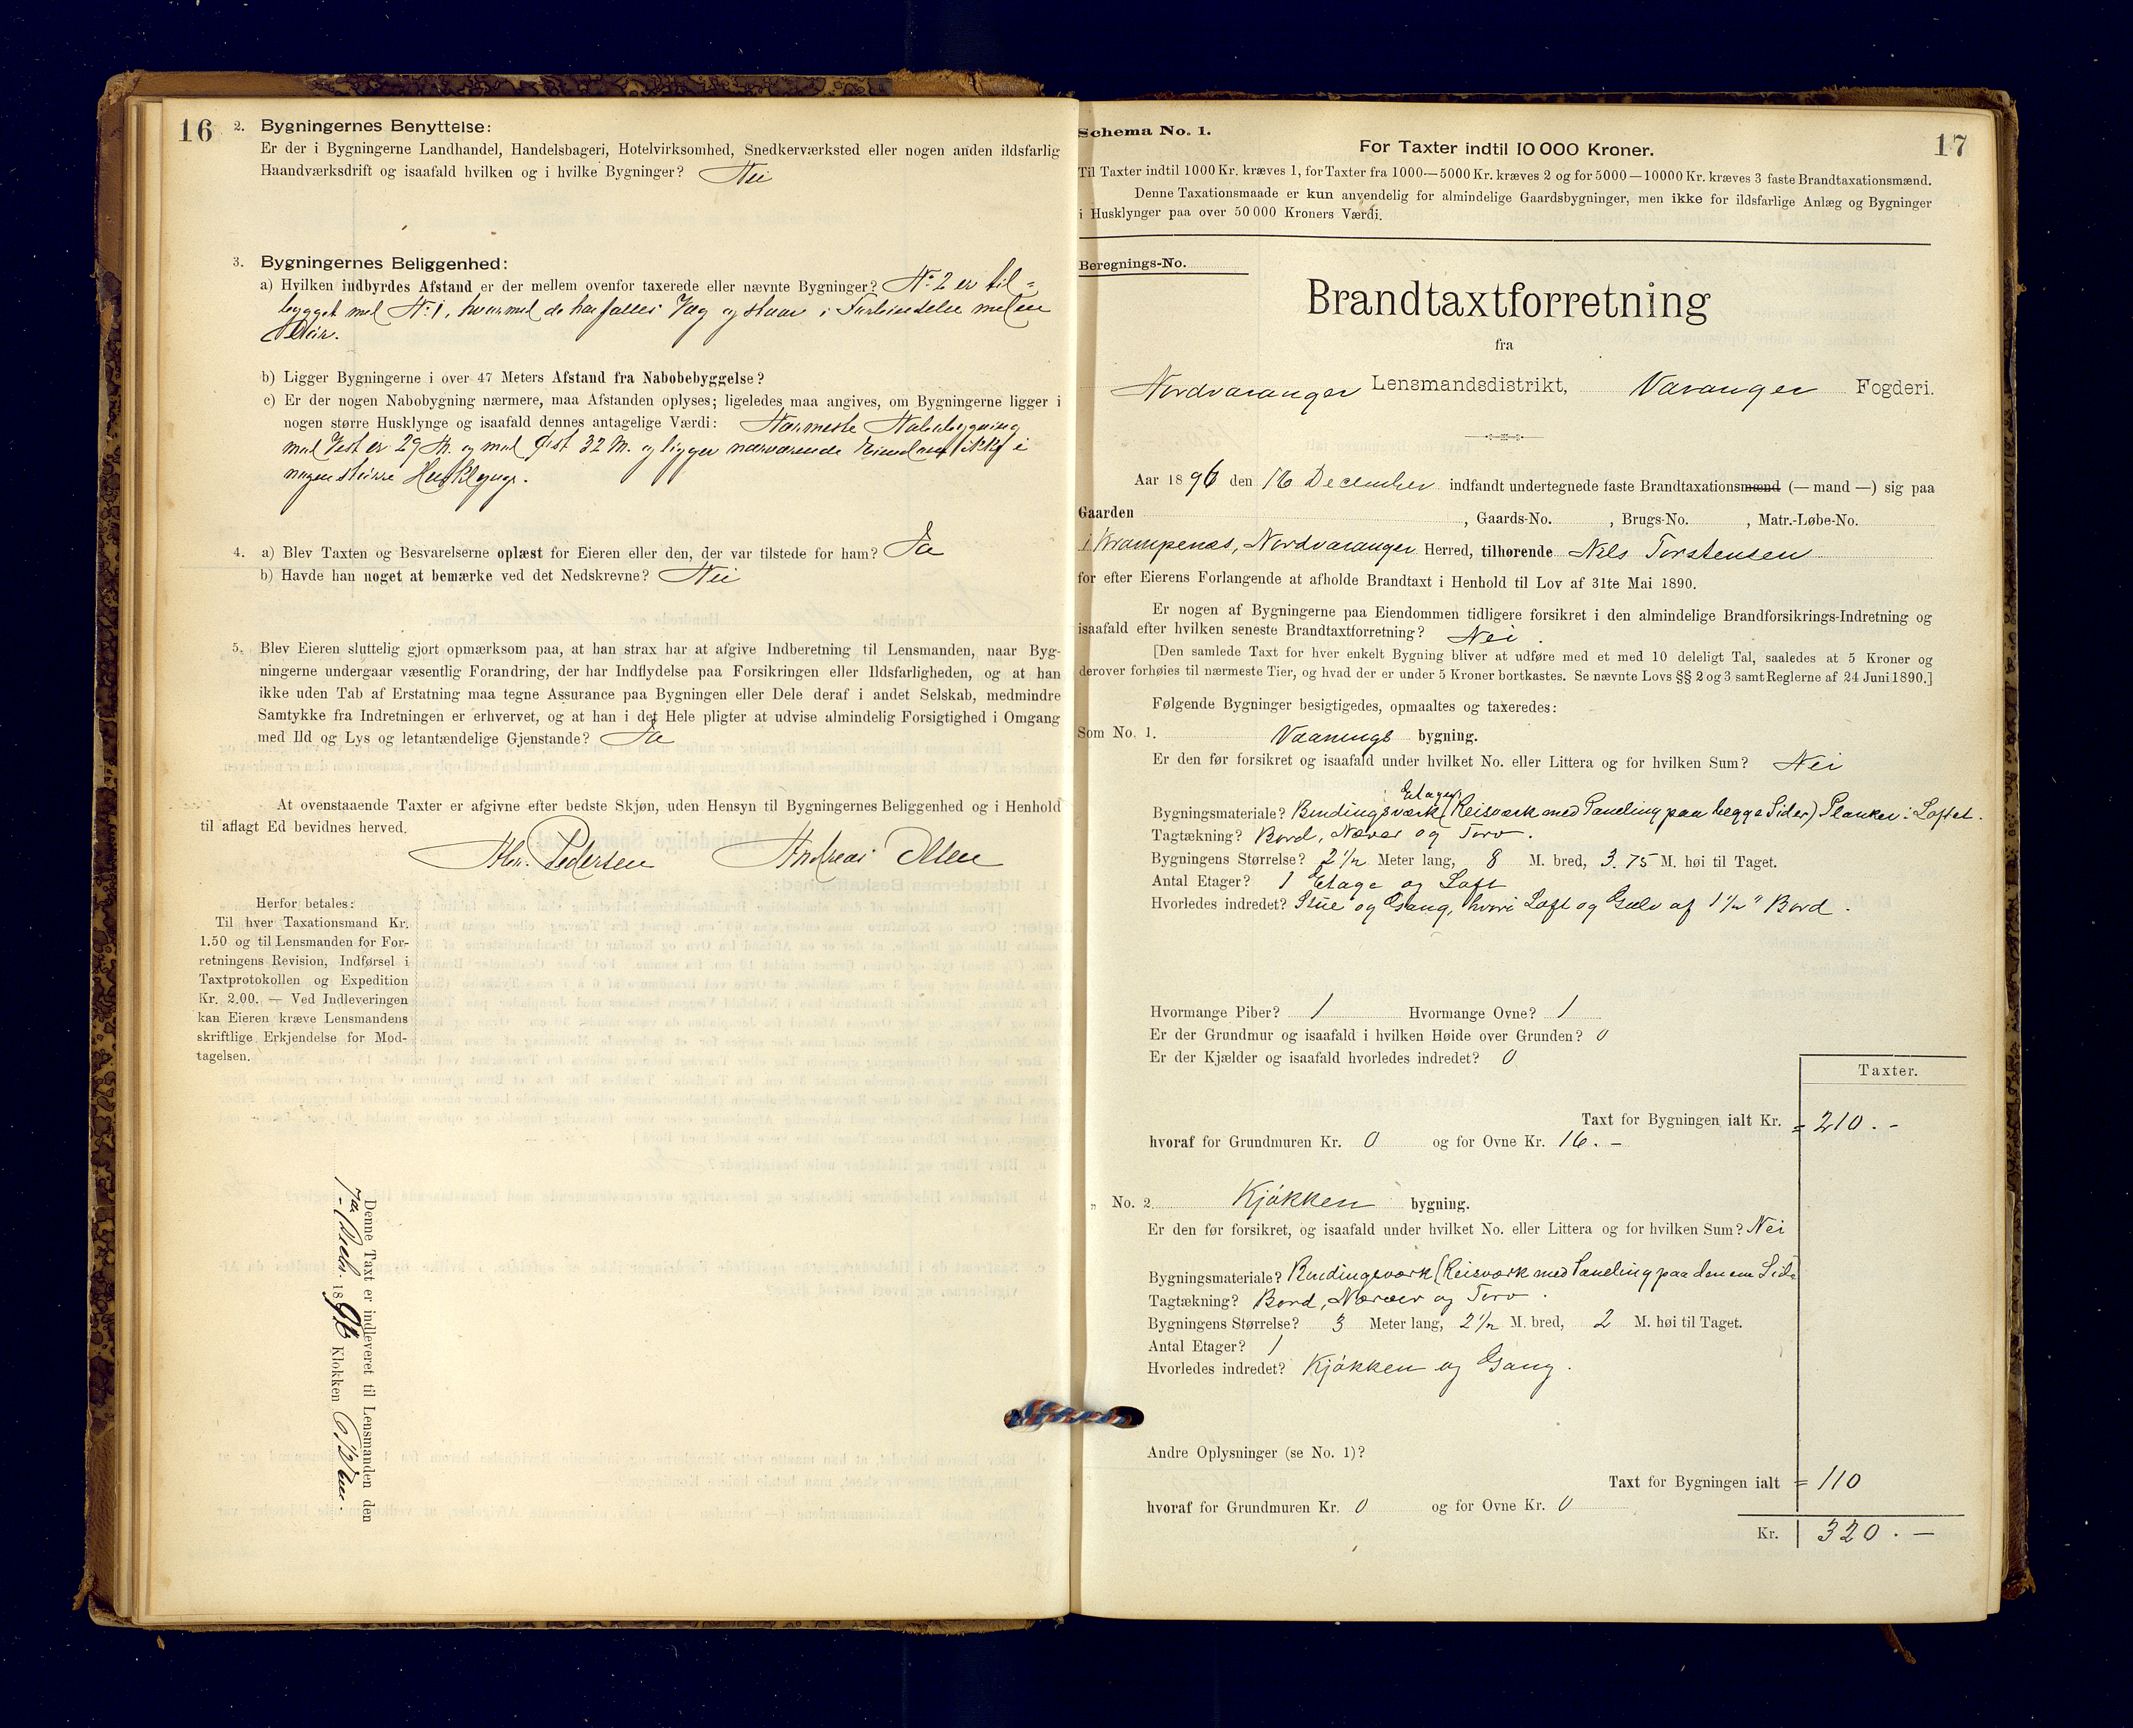 16
2. Bygningernes Benyttelse:
Er der i Bygningerne Landhandel, Handelsbageri, Hotelvirksomhed, Snedkerværksted eller nogen anden ildsfarlig
Haandværksdrift og isaafald hvilken og i hvilke Bygninger? Nei
3. Bygningernes Beliggenhed:
a) Hvilken indbyrdes Afstand er der mellem ovenfor taxerede eller nævnte Bygninger? No. 2 er til-
bygget med No. 1, hvormed de har fælles Væg og staar i Forbindelse med en
Dør.
b) Ligger Bygningerne i over 47 Meters Afstand fra Nabobebyggelse?
c) Er der nogen Nabobygning nærmere, maa Afstanden oplyses; ligeledes maa angives, om Bygningerne ligger i
nogen større Husklynge og isaafald dennes antagelige Værdi: Nærmeste Nabobygning
mod Vest er 29 M. og mod Øst 32 M. og ligger nærværende Eiendom ikke i
nogen større Husklynge.
4. a) Blev Taxten og Besvarelserne oplæst for Eieren eller den, der var tilstede for ham? Ja
b) Havde han noget at bemærke ved det Nedskrevne? Nei
5. Blev Eieren sluttelig gjort opmærksom paa, at han strax har at afgive Indberetning til Lensmanden, naar Byg-
ningerne undergaar væsentlig Forandring, der har Indflydelse paa Forsikringen eller Ildsfarligheden, og at han
ikke uden Tab af Erstatning maa tegne Assurance paa Bygningen eller Dele deraf i andet Selskab, medmindre
Samtykke fra Indretningen er erhvervet, og at han i det Hele pligter at udvise almindelig Forsigtighed i Omgang
med Ild og Lys og letantændelige Gjenstande? Ja
At ovenstaaende Taxter er afgivne efter bedste Skjøn, uden Hensyn til Bygningernes Beliggenhed og i Henhold
til aflagt Ed bevidnes herved.
Pedersen Andreas Olsen
Herfor betales:
Til hver Taxationsmand Kr.
1.50 og til Lensmanden for For-
retningens Revision, Indførsel i
Taxtprotokollen og Expedition
Kr. 2.00. — Ved Indleveringen
kan Eieren kræve Lensmandens
skriftlige Erkjendelse for Mod-
tagelsen.
Denne Taxt er indleveret til Lensmanden den
7de Decbr. 1896 Klokken 6
17
Schema No. 1.
For Taxter indtil 10 000 Kroner.
Til Taxter indtil 1000 Kr. kræves 1, for Taxter fra 1000—5000 Kr. kræves 2 og for 5000—10000 Kr. kræves 3 faste Brandtaxationsmænd.
Denne Taxationsmaade er kun anvendelig for almindelige Gaardsbygninger, men ikke for ildsfarlige Anlæg og Bygninger
i Husklynger paa over 50 000 Kroners Værdi.
Beregnings-No.
Brandtaxtforretning
fra
Nordvaranger Lensmandsdistrikt, Varanger Fogderi.
Aar 1896 den 16 December indfandt undertegnede faste Brandtaxationsmænd (— mand —) sig paa
Gaarden , Gaards-No. , Brugs-No. , Matr.-Løbe-No.
i Krampenæs, Nordvaranger Herred, tilhørende Nils Torstensen
for efter Eierens Forlangende at afholde Brandtaxt i Henhold til Lov af 31te Mai 1890.
Er nogen af Bygningerne paa Eiendommen tidligere forsikret i den almindelige Brandforsikrings-Indretning og
isaafald efter hvilken seneste Brandtaxtforretning? Nei.
[Den samlede Taxt for hver enkelt Bygning bliver at udføre med et med 10 deleligt Tal, saaledes at 5 Kroner og
derover forhøies til nærmeste Tier, og hvad der er under 5 Kroner bortkastes. Se nævnte Lovs §§ 2 og 3 samt Reglerne af 24 Juni 1890.]
Følgende Bygninger besigtigedes, opmaaltes og taxeredes:
Som No. 1. Vaanings bygning.
Er den før forsikret og isaafald under hvilket No. eller Littera og for hvilken Sum? Nei
i Etagen
Bygningsmateriale? Bindingsværk (Reisværk med Paneling paa begge Sider) Planker i Loftet.
Tagtækning? Bord, Næver og Torv.
Bygningens Størrelse? 2 1/2 Meter lang, 8 M. bred, 3.75 M. høi til Taget.
Antal Etager? 1 Etage og Loft
Hvorledes indredet? Stue og Gang, hvori Loft og Gulv af 1 1/2" Bord.
Hvormange Piber? 1 Hvormange Ovne? 1
Er der Grundmur og isaafald i hvilken Høide over Grunden? 0
Er der Kjælder og isaafald hvorledes indredet? 0
Taxter.
Taxt for Bygningen ialt Kr. = 210.-
hvoraf for Grundmuren Kr. 0 og for Ovne Kr. 16.-
„ No. 2. Kjøkken bygning.
Er den før forsikret, og isaafald under hvilket No. eller Littera og for hvilken Sum? Nei
Bygningsmateriale? Bindingsværk (Reisværk med Paneling paa den ene Side
Tagtækning? Bord, Næver og Torv.
Bygningens Størrelse? 3 Meter lang, 2 1/2 M. bred, 2 M. høi til Taget.
Antal Etager? 1
Hvorledes indredet? Kjøkken og Gang.
Andre Oplysninger (se No. 1)?
Taxt for Bygningen ialt = 110
hvoraf for Grundmuren Kr. 0 og for Ovne Kr. 0
Kr. 320.-